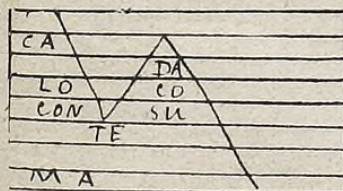 CA
DA
LO CO
CON SU
TE
MA